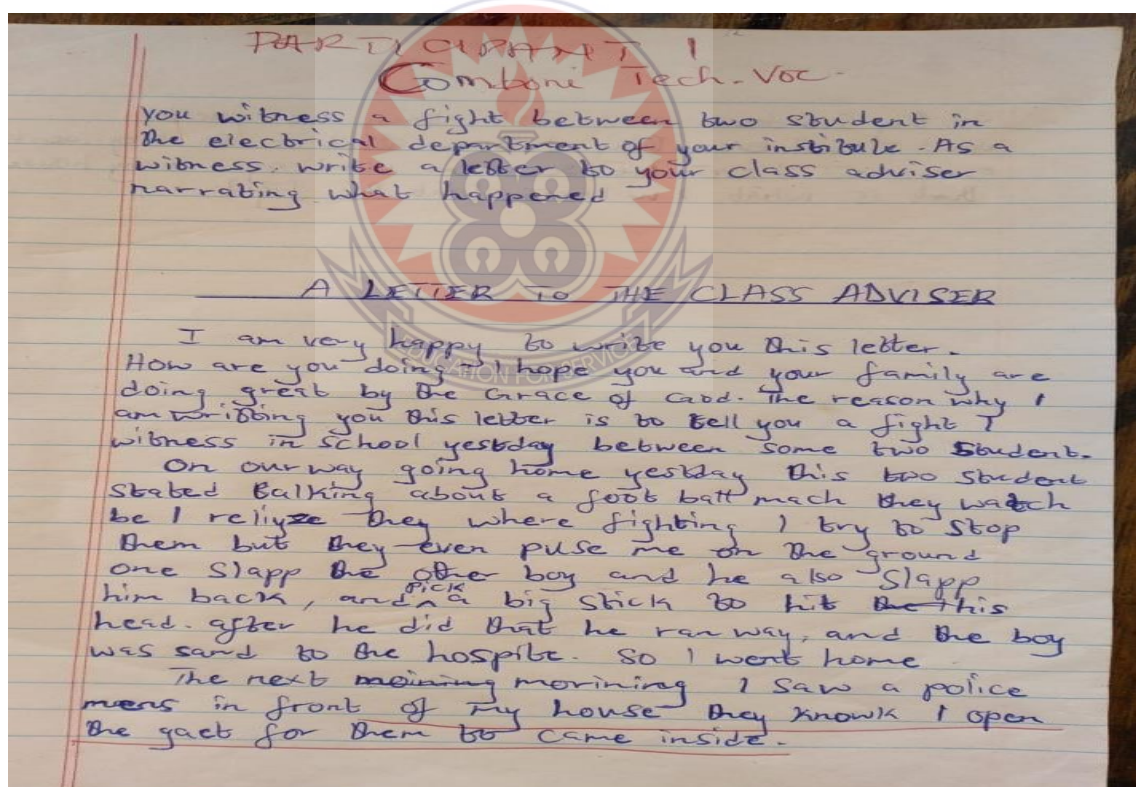 PARTICIPANT 1
Comboni Tech. Voc.
you witness a fight between two student in
the electrical department of your institute. As a
witness. write a letter to your class adviser
narrating what happened
A LETTER TO THE CLASS ADVISER
I am very happy to write you this letter.
How are you doing - I hope you and your family are
doing great by the Grace of God. The reason why I
am writting you this letter is to tell you a fight I
witness in school yestday between some two student.
On our way going home yestday this two student
stated talking about a foot ball mach they watch
be I reliyze they where fighting I try to stop
them but they even puse me on the ground
one slapp the other boy and he also slapp
him back, and pick a big stick to hit the his
head. after he did that he ran way, and the boy
was sand to the hospite. so I went home
The next moining morining I saw a police
mens in front of my house they knowk I open
the gaet for them to came inside.
EDUCATION FOR SERVICE